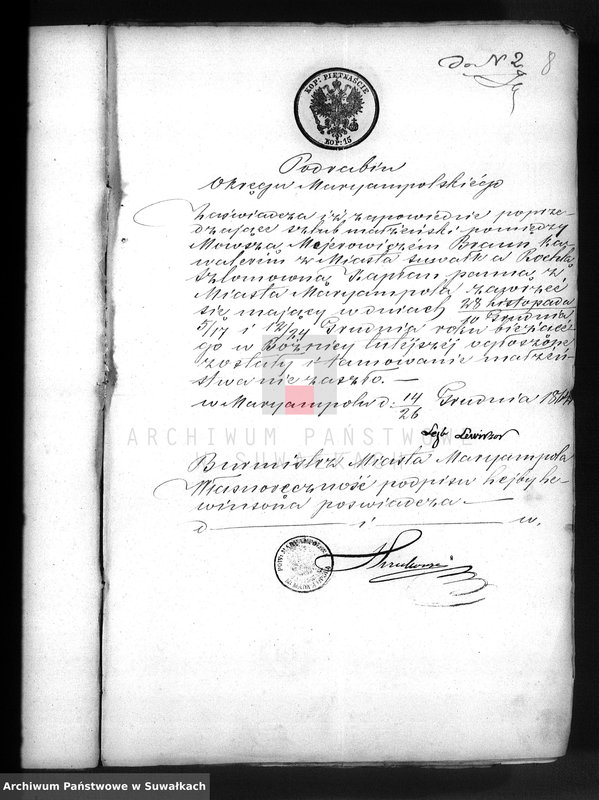 Do N 2 8
KOP: PIĘTNAŚCIE
KOP: 15
Podrabin
Okręgu Maryampolskiégo
Zaświadcza iż zapowiednie poprze-
dzające szlub małżeński pomiędzy
Mowszą Mejerowiczem Braun ka-
walerem z Miasta Suwałk a Rochlą
Szlomowną Kapłan panną z
Miasta Maryampola zawrzeć
się mający w dniach 28 Listopada / 10 Grudnia
5/17 i 12/24 Grudnia roku bieżące-
go w Bożnicy tutejszéj ogłoszone
zostały i tamowanie małżeń-
stwa nie zaszło. —
w Maryampolu d: 14/26 Grudnia 18
ARCHIWUM PAŃSTWOWE
W SUWAŁKACH
Lejb Lewinson
Burmistrz Miasta Maryampola
Własnoręczność podpisu Lejby Le-
winsona poświadcza —
d — i — w.
Archiwum Państwowe w Suwałkach